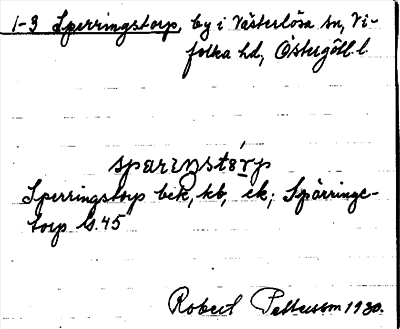 1-3 Sperringstorp, by i Västerlösa sn, Vi-
folka hd, Östergötl. l.
spariŋstórp
Sperringstorp bek, kb, ek; Spärringe-
torp G. 45
Robert Pettersson 1930.